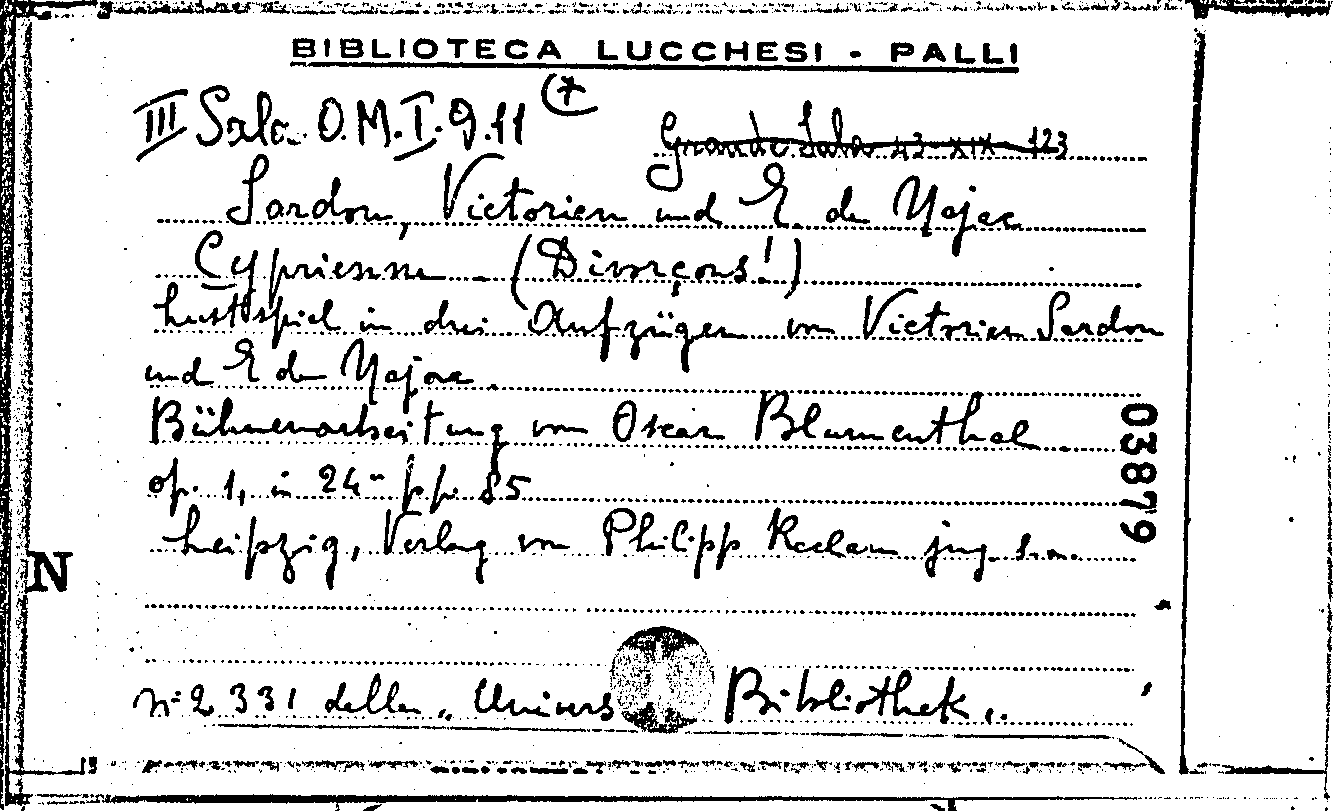 BIBLIOTECA LUCCHESI - PALLI
III Sala O.M.I.9.11 (7
Grande Sala 23-XIX-123
Sardou, Victorien und E. de Najac
Cyprienne (Divorçons!)
Lustspiel in drei Aufzügen von Victorien Sardou
und E de Najac.
Bühnenarbeitung von Oscar Blumenthal
op. 1, in 24° pp. 85
Leipzig, Verlag von Philipp Reclam jug. s.a.
N° 2331 della „ Univers Bibliothek „.
03879
N